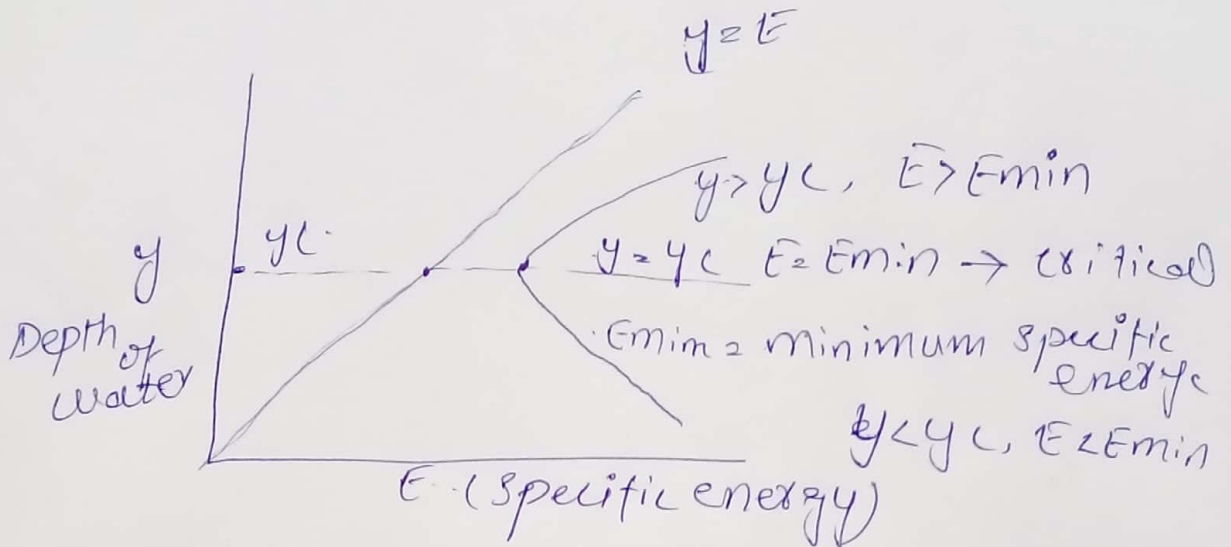 y = E
y > yc, E > Emin
yc.
y
y = yc E = Emin → critical
Depth of water
Emim = minimum specific
energyc
y < yc, E < Emin
E. (specific energy)